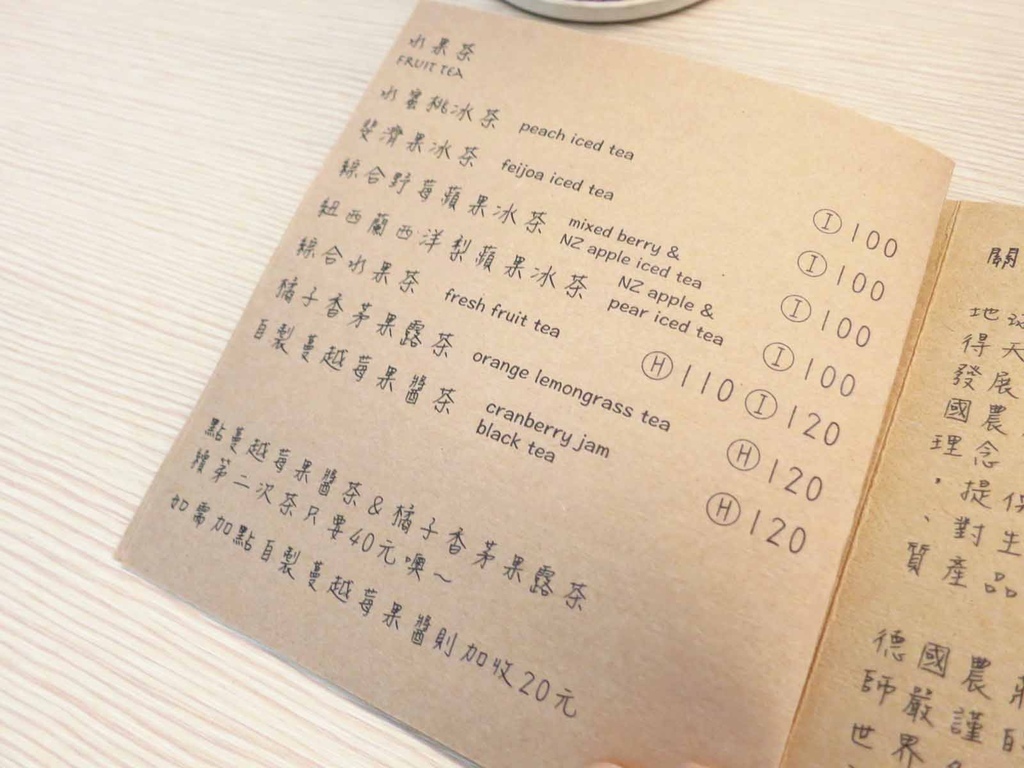 水果茶
FRUIT TEA
水蜜桃冰茶 peach iced tea Ⓘ 100
斐濟果冰茶 feijoa iced tea Ⓘ 100
綜合野莓蘋果冰茶 mixed berry &
NZ apple iced tea Ⓘ 100
紐西蘭西洋梨蘋果冰茶 NZ apple &
pear iced tea Ⓘ 100
綜合水果茶 fresh fruit tea Ⓗ 110 Ⓘ 120
橘子香茅果露茶 orange lemongrass tea Ⓗ 120
自製蔓越莓果醬茶 cranberry jam
black tea Ⓗ 120
點蔓越莓果醬茶&橘子香茅果露茶
續第二次茶只要40元噢~
如需加點自製蔓越莓果醬則加收20元
關
地
得天
發展
國農
理念保
，提對生
、質產品
德國農
師嚴謹的
世界